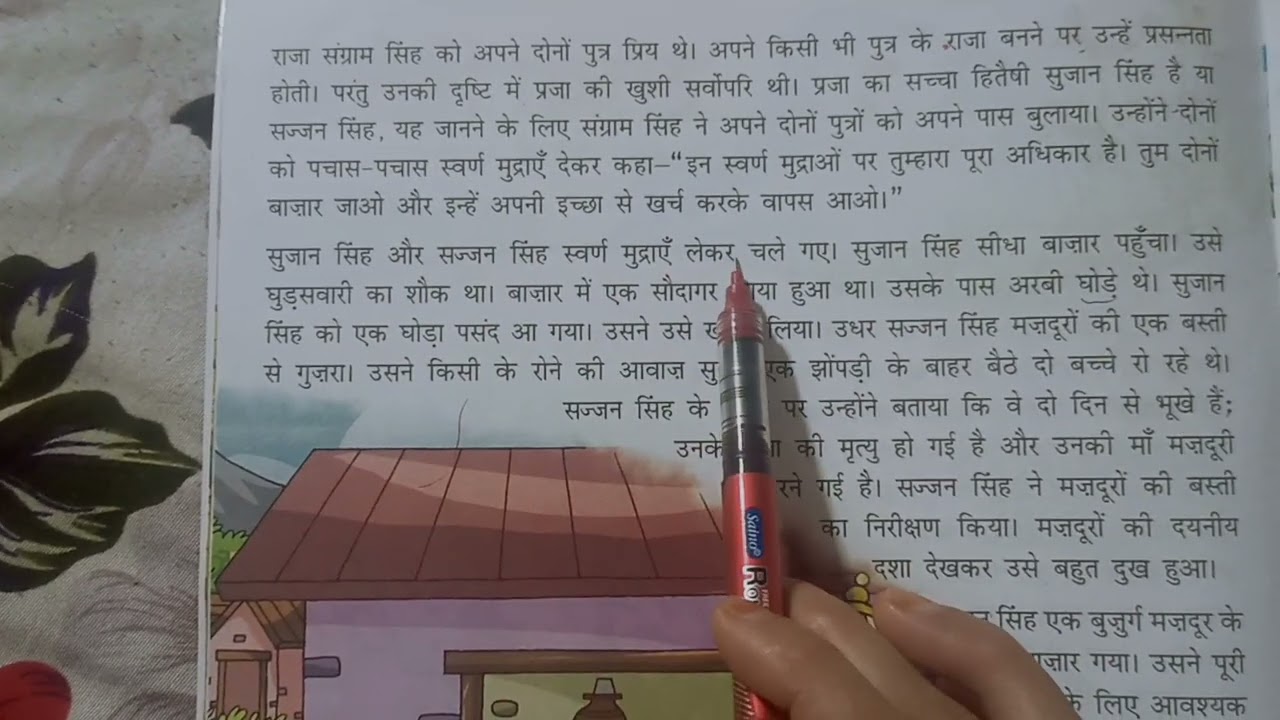 राजा संग्राम सिंह को अपने दोनों पुत्र प्रिय थे। अपने किसी भी पुत्र के राजा बनने पर उन्हें प्रसन्नता
होती। परंतु उनकी दृष्टि में प्रजा की खुशी सर्वोपरि थी। प्रजा का सच्चा हितैषी सुजान सिंह है या
सज्जन सिंह, यह जानने के लिए संग्राम सिंह ने अपने दोनों पुत्रों को अपने पास बुलाया। उन्होंने दोनों
को पचास-पचास स्वर्ण मुद्राएँ देकर कहा–“इन स्वर्ण मुद्राओं पर तुम्हारा पूरा अधिकार है। तुम दोनों
बाज़ार जाओ और इन्हें अपनी इच्छा से खर्च करके वापस आओ।”
सुजान सिंह और सज्जन सिंह स्वर्ण मुद्राएँ लेकर चले गए। सुजान सिंह सीधा बाज़ार पहुँचा। उसे
घुड़सवारी का शौक था। बाज़ार में एक सौदागर हुआ था। उसके पास अरबी घोड़े थे। सुजान
सिंह को एक घोड़ा पसंद आ गया। उसने उसे लिया। उधर सज्जन सिंह मज़दूरों की एक बस्ती
से गुज़रा। उसने किसी के रोने की आवाज़ एक झोंपड़ी के बाहर बैठे दो बच्चे रो रहे थे।
सज्जन सिंह के पर उन्होंने बताया कि वे दो दिन से भूखे हैं;
उनके की मृत्यु हो गई है और उनकी माँ मज़दूरी
गई है। सज्जन सिंह ने मज़दूरों की बस्ती
का निरीक्षण किया। मज़दूरों की दयनीय
दशा देखकर उसे बहुत दुख हुआ।
सिंह एक बुज़ुर्ग मज़दूर के
गया। उसने पूरी
के लिए आवश्यक
Saino